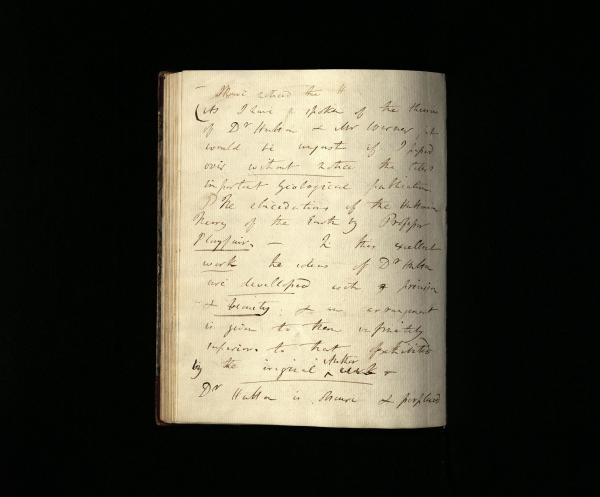 noticed the H
(As I have spoken of the theories
of Dr Hutton & Mr Werner, it
would be unjust if I passed
over without notice the
important Geological publication
The elucidations of the Huttonian
Theory of the Earth by Professor
Playfair. — In this excellent
work the ideas of Dr Hutton
are developed with precision
& beauty; & an arrangement
is given to them infinitely
superior to that exhibited
by the original Author &
Dr Hutton is obscure & perplexed